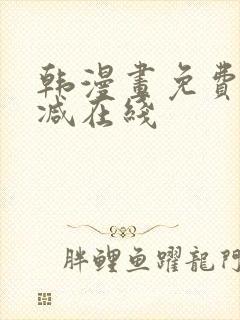 韩漫畫免費
减在綫
胖鲤鱼躍龍門